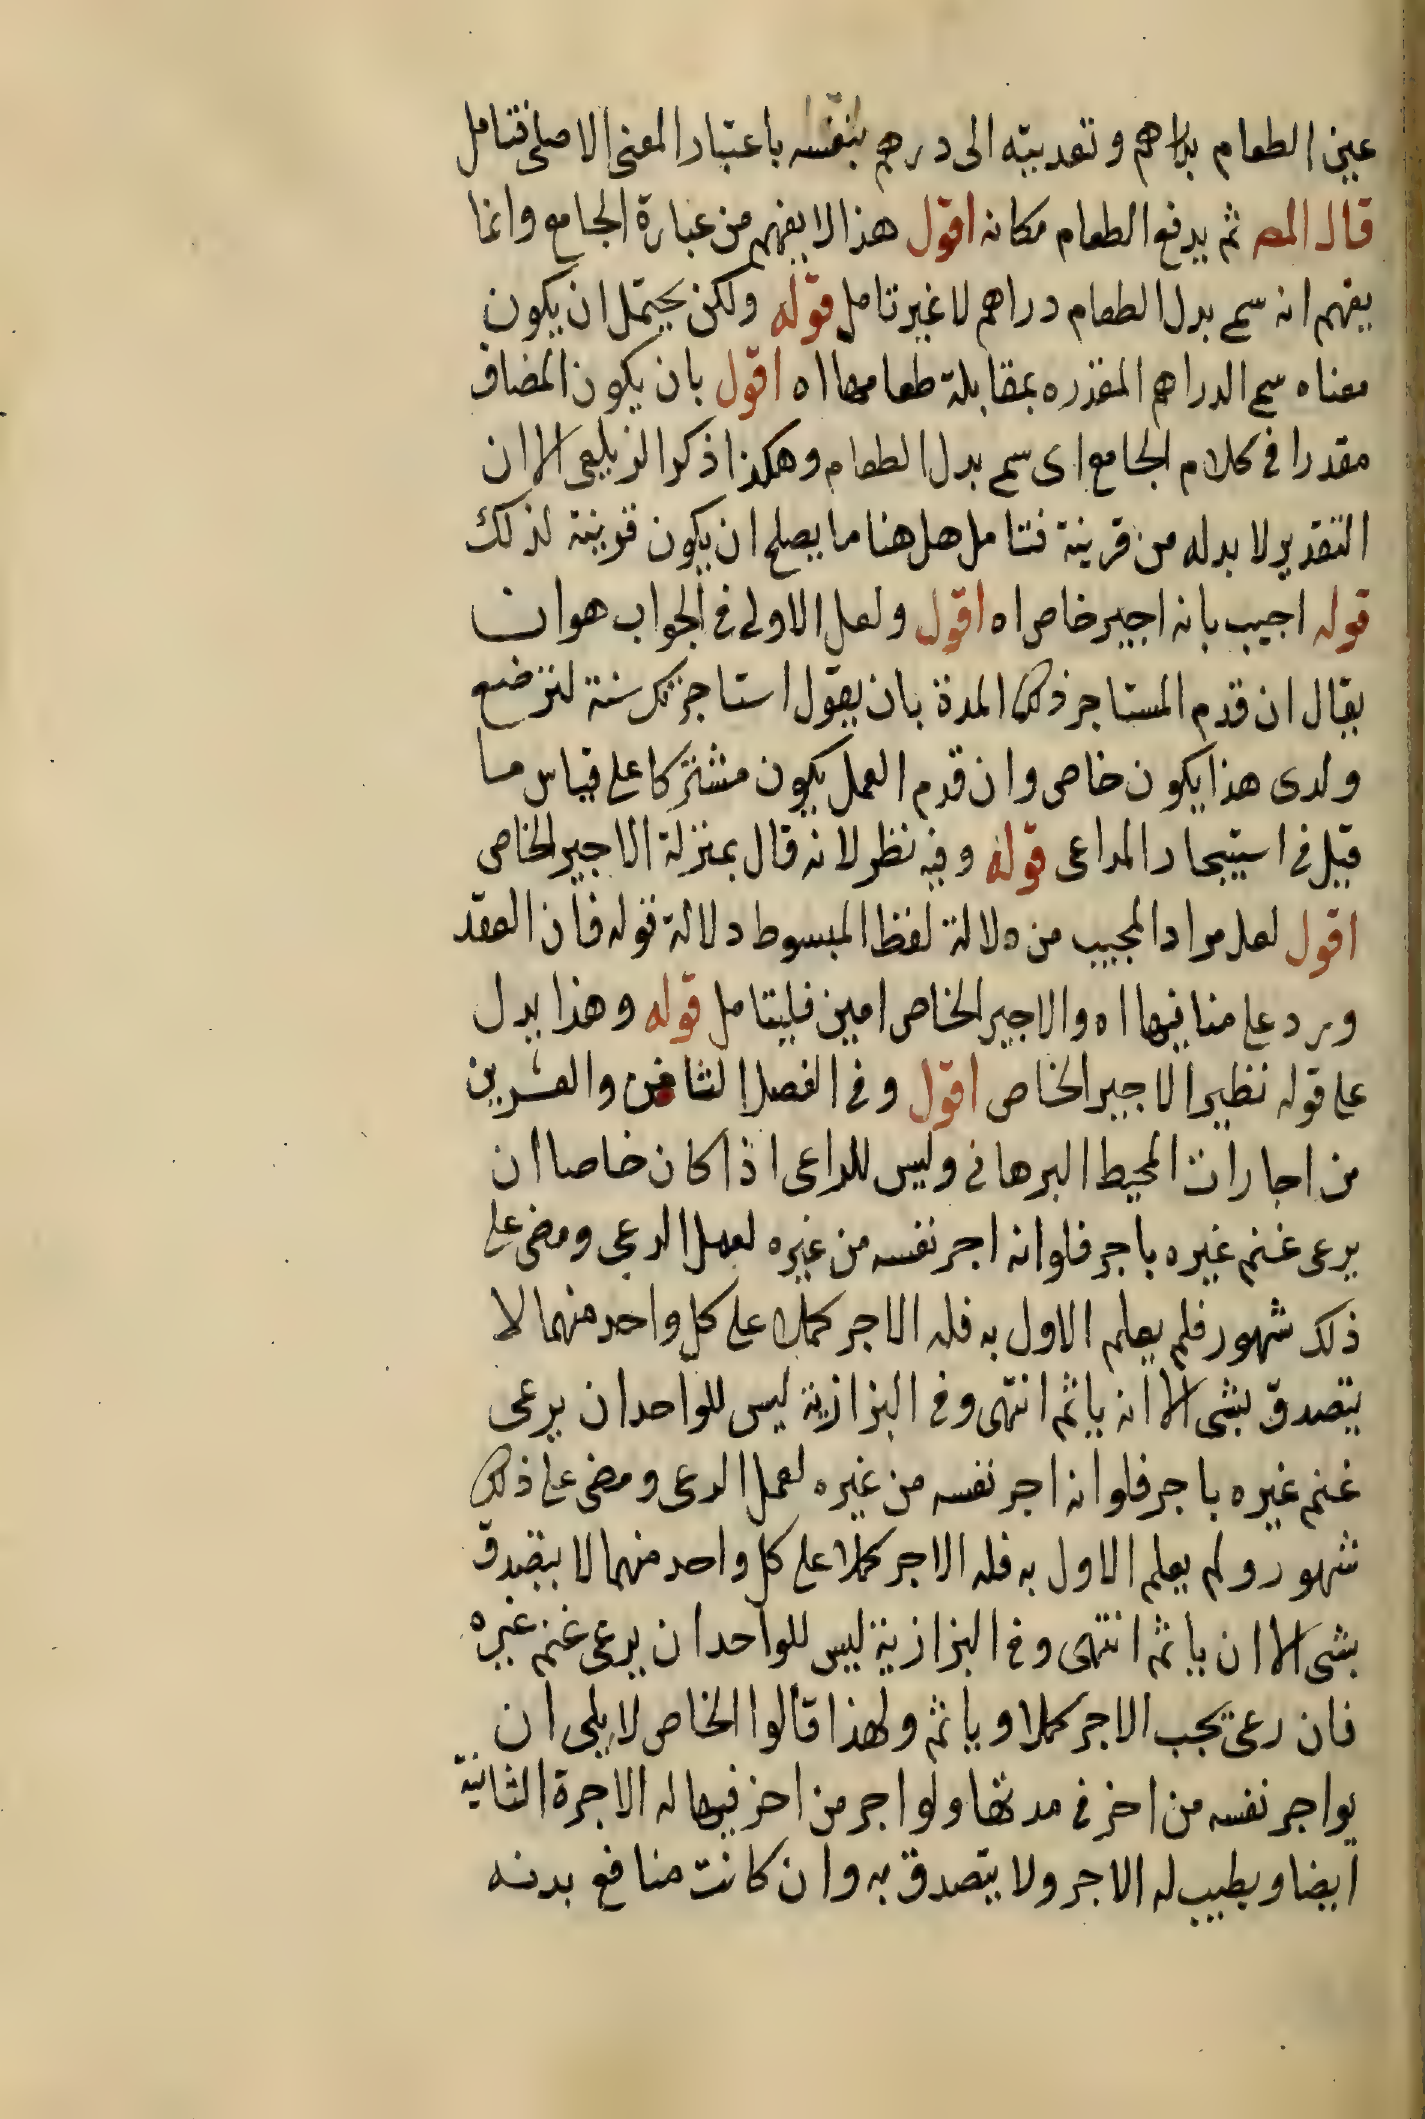 عين الطعام بدراهم وتعديته الى درهم بنفسه باعتبار المعنى الاصلى فتامل
قال المص ثم يدفع الطعام مكانه اقول هذا لا يفهم من عبارة الجامع وانما
يفهم انه سمى بدل الطعام دراهم لا غير تامل قوله ولكن يحتمل ان يكون
معناه سمى الدراهم المقدره بمقابلة طعامها اه اقول بان يكون المضاف
مقدرا فى كلام الجامع اى سمى بدل الطعام وهكذا ذكر الزيلعى الا ان
التقدير لا بد له من قرينة فتامل هل هنا ما يصلح ان يكون قرينة لذلك
قوله اجيب بانه اجير خاص اه اقول ولعل الاولى فى الجواب هو ان
يقال ان قدم المستاجر ذكر المدة بان يقول استاجرتك سنة لترضع
ولدى هذا يكون خاص وان قدم العمل يكون مشتركا على قياس ما
قيل فى استيجار الراعى قوله وفيه نظر لانه قال بمنزلة الاجير الخاص
اقول لعل مراد المجيب من دلالة لفظ المبسوط دلالة قوله فان العقد
ورد على منافعها اه والاجير الخاص امين فليتامل قوله وهذا يدل
على قوله نظير الاجير الخاص اقول وفى الفصل الثامن والعشرين
من اجارات المحيط البرهانى وليس للراعى اذا كان خاصا ان
يرعى غنم غيره باجر فلو انه اجر نفسه من غيره لعمل الرعى ومضى على
ذلك شهور فلم يعلم الاول به فله الاجر كملا على كل واحد منهما لا
يتصدق بشى الا انه ياثم انتهى وفى البزازية ليس للواحد ان يرعى
غنم غيره باجر فلو انه اجر نفسه من غيره لعمل الرعى ومضى على ذلك
شهور ولم يعلم الاول به فله الاجر كملا على كل واحد منهما لا يتصدق
بشى الا ان ياثم انتهى وفى البزازية ليس للواحد ان يرعى غنم غيره
فان رعى يجب الاجر كملا وياثم ولهذا قالوا الخاص لا يلى ان
يواجر نفسه من اخر فى مدتها ولو اجر من اخر فيها له الاجرة الثانية
ايضا ويطيب له الاجر ولا يتصدق به وان كانت منافع بدنه